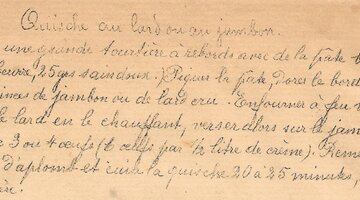 Quische au lard ou au jambon.
une grande tourtière à rebords avec de la pâte
beurre, 25 grs saindoux. Piquer la pâte, dorer le bord
minces de jambon ou de lard cru. Enfourner à feu
le lard en le chauffant, verser alors sur le jam
3 ou 4 oeufs (6 oeufs par ½ litre de crème). Reme
d'aplomb et cuire la quische 20 à 25 minutes,